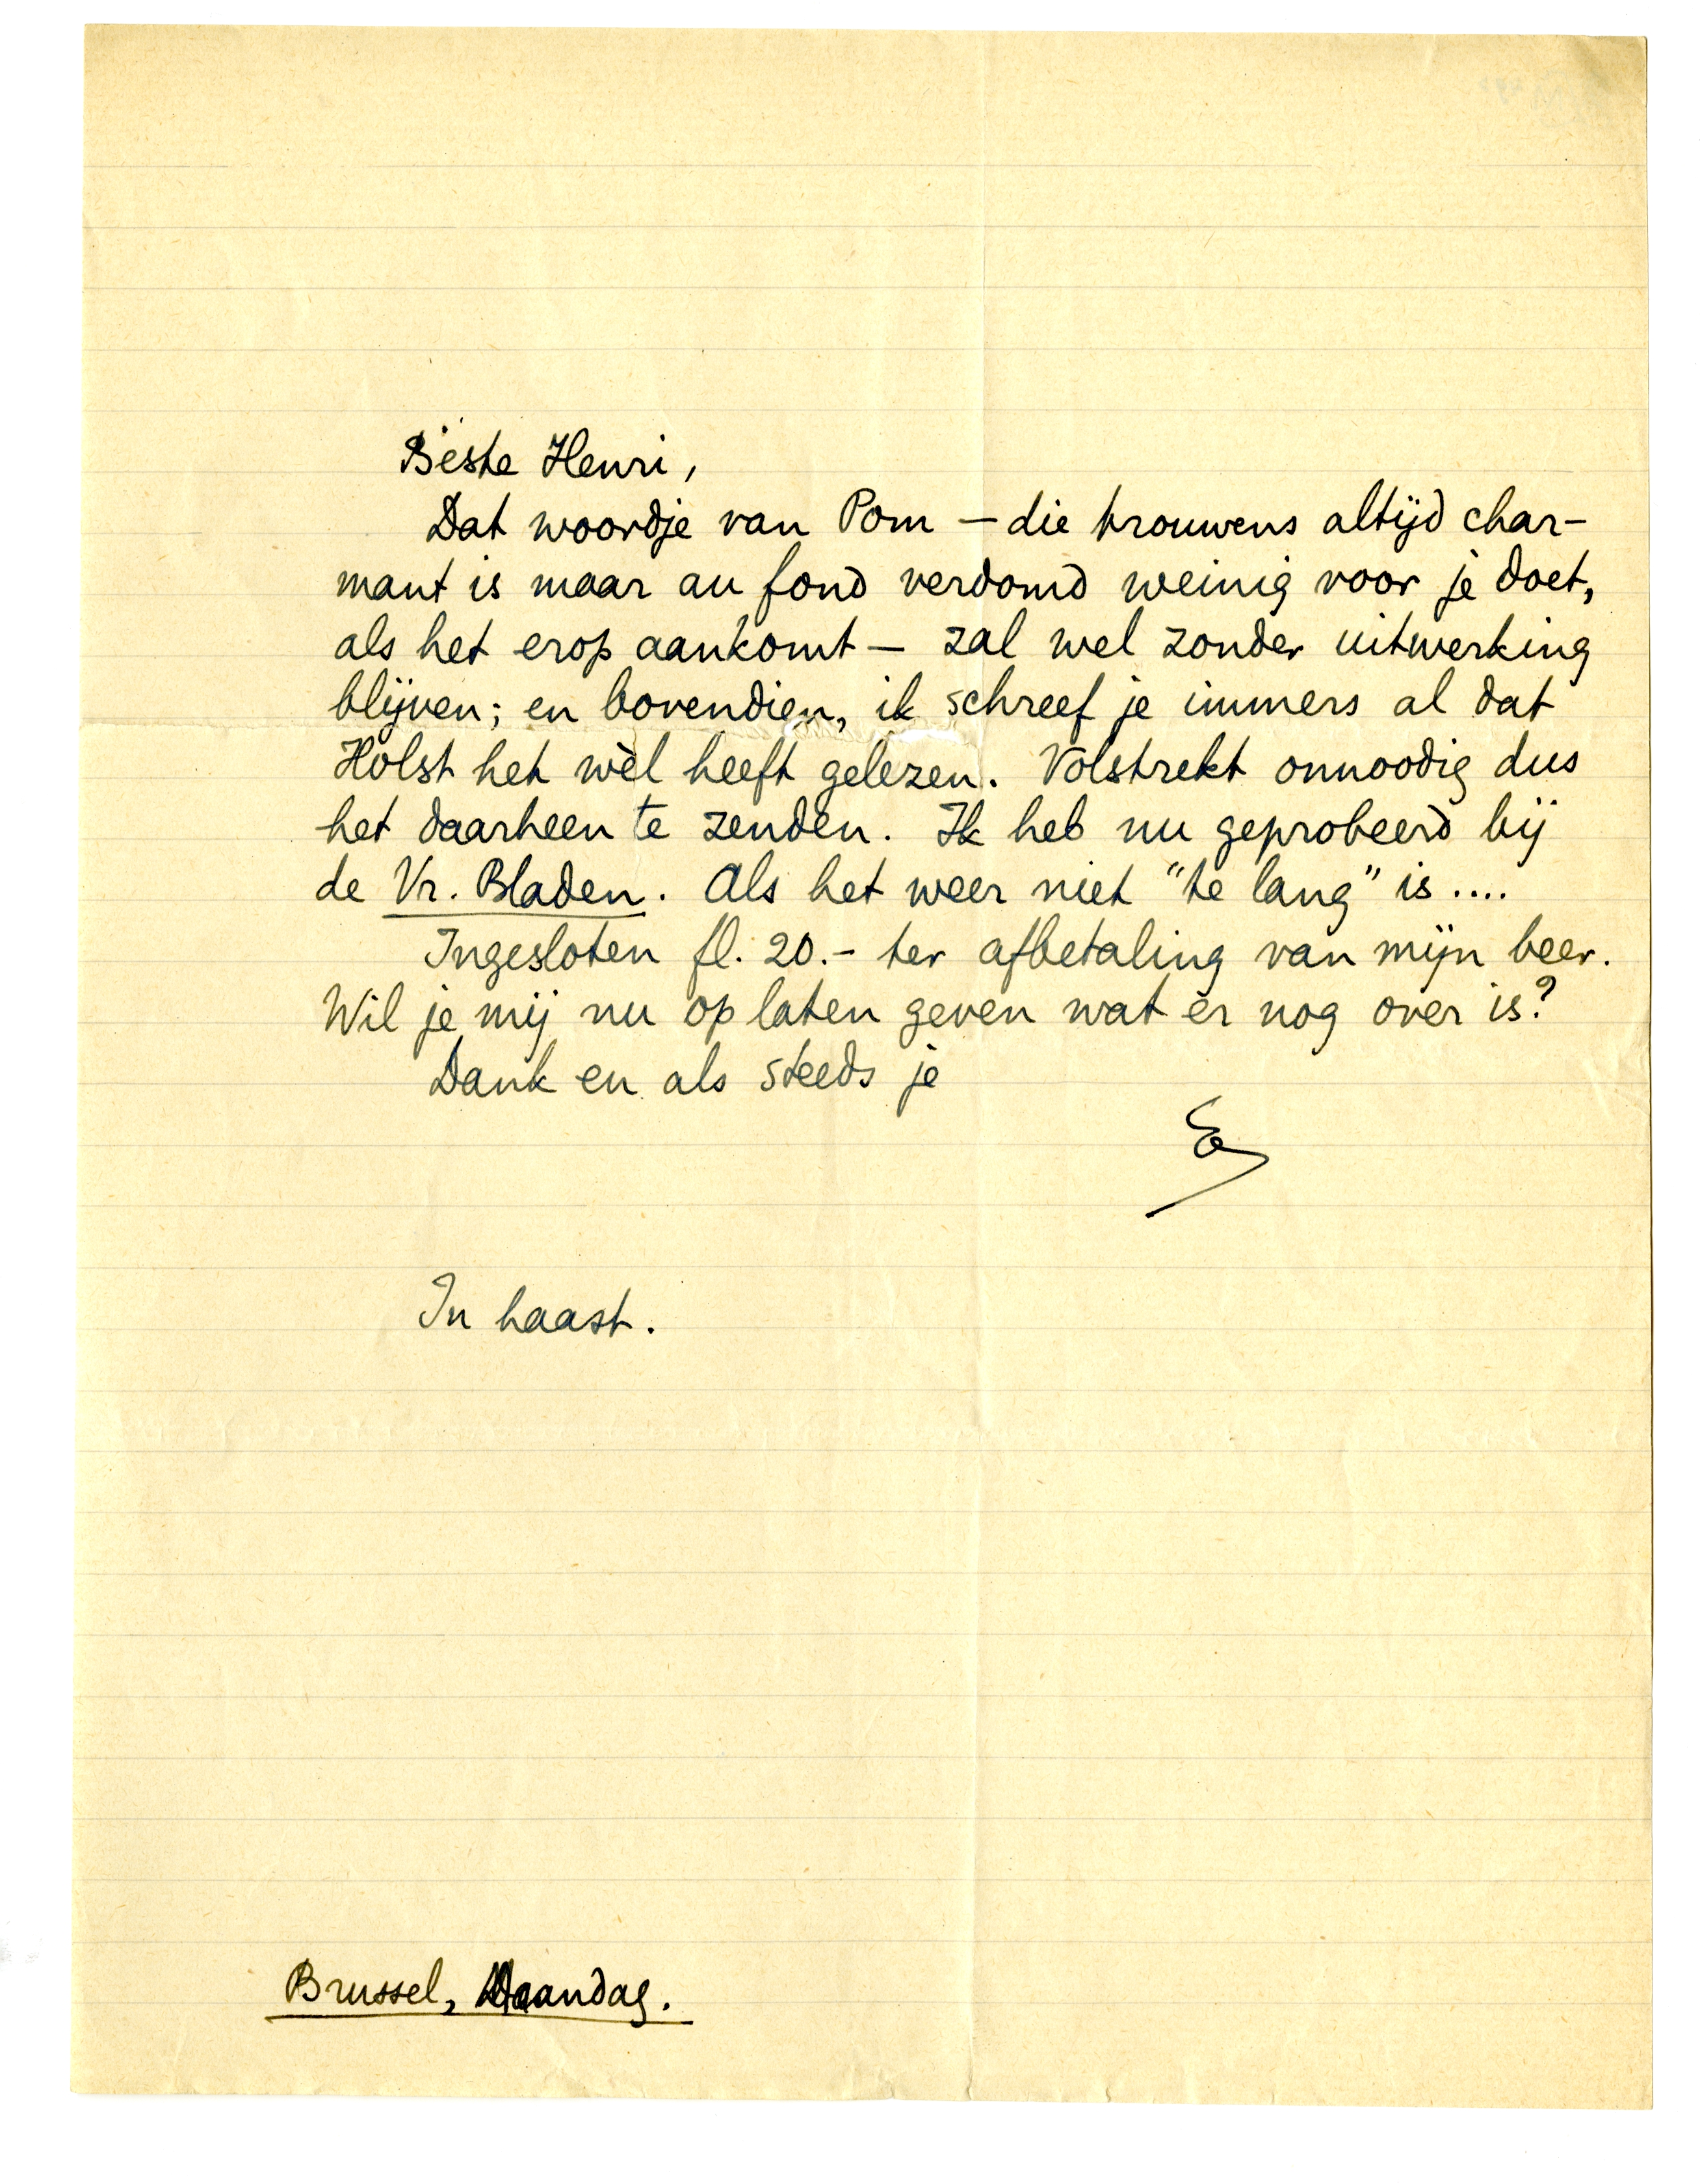 Beste Henri,
Dat woordje van Pom – die trouwens altijd char-
mant is maar au fond verdomd weinig voor je doet,
als het erop aankomt – zal wel zonder uitwerking
blijven; en bovendien, ik schreef je immers al dat
Holst het wèl heeft gelezen. Volstrekt onnoodig dus
het daarheen te zenden. Ik heb nu geprobeerd bij
de Vr. Bladen. Als het weer niet "te lang" is ....
Ingesloten fl. 20.- ter afbetaling van mijn beer.
Wil je mij nu op laten geven wat er nog over is?
Dank en als steeds je
E
In haast.
Brussel, Maandag.